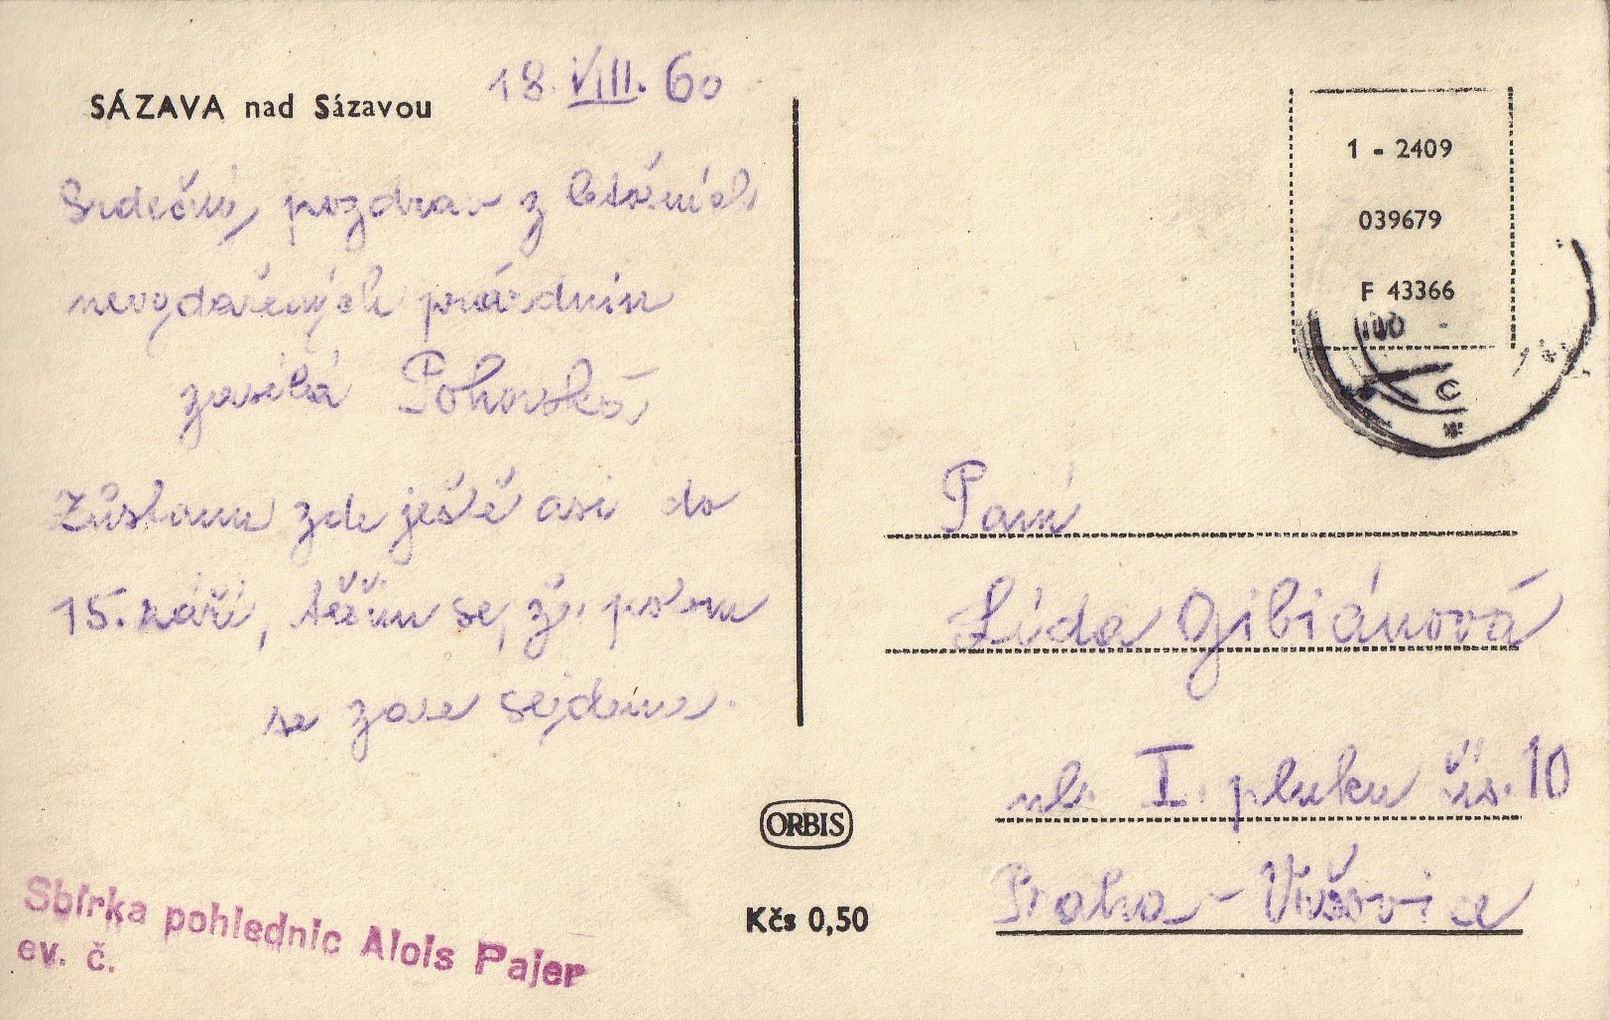 SÁZAVA nad Sázavou
18. VIII. 60
Srdečný pozdrav z letošních
nevydařených prázdnin
zasílá Pohorská
Zůstanu zde ještě asi do
15. září, těším se, že potom
se zase sejdeme.
1 - 2409
039679
F 43366
C
Paní
Lída Gibiánová
ul. I. pluku čís. 10
Praha - Vršovice
ORBIS
Kčs 0,50
Sbírka pohlednic Alois Pajer
ev. č.